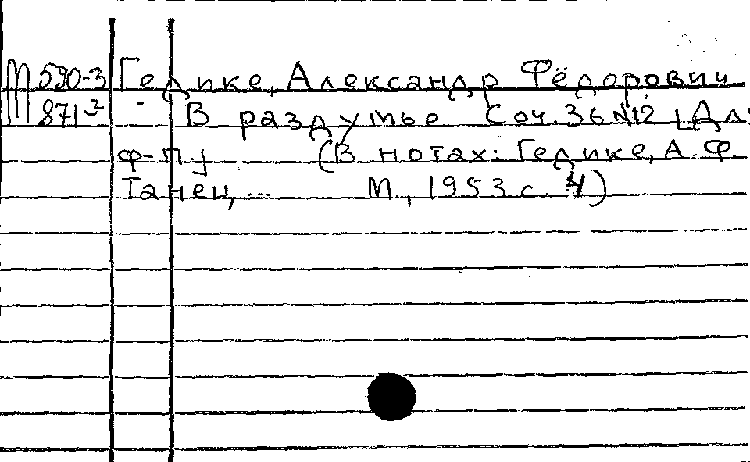 М 590-3 Гедике, Александр Фёдорович
871-2 В раздумье Соч. 36 №12 [Для
ф-п] (В нотах: Гедике, А. Ф
Танец,... М., 1953 с. 4)